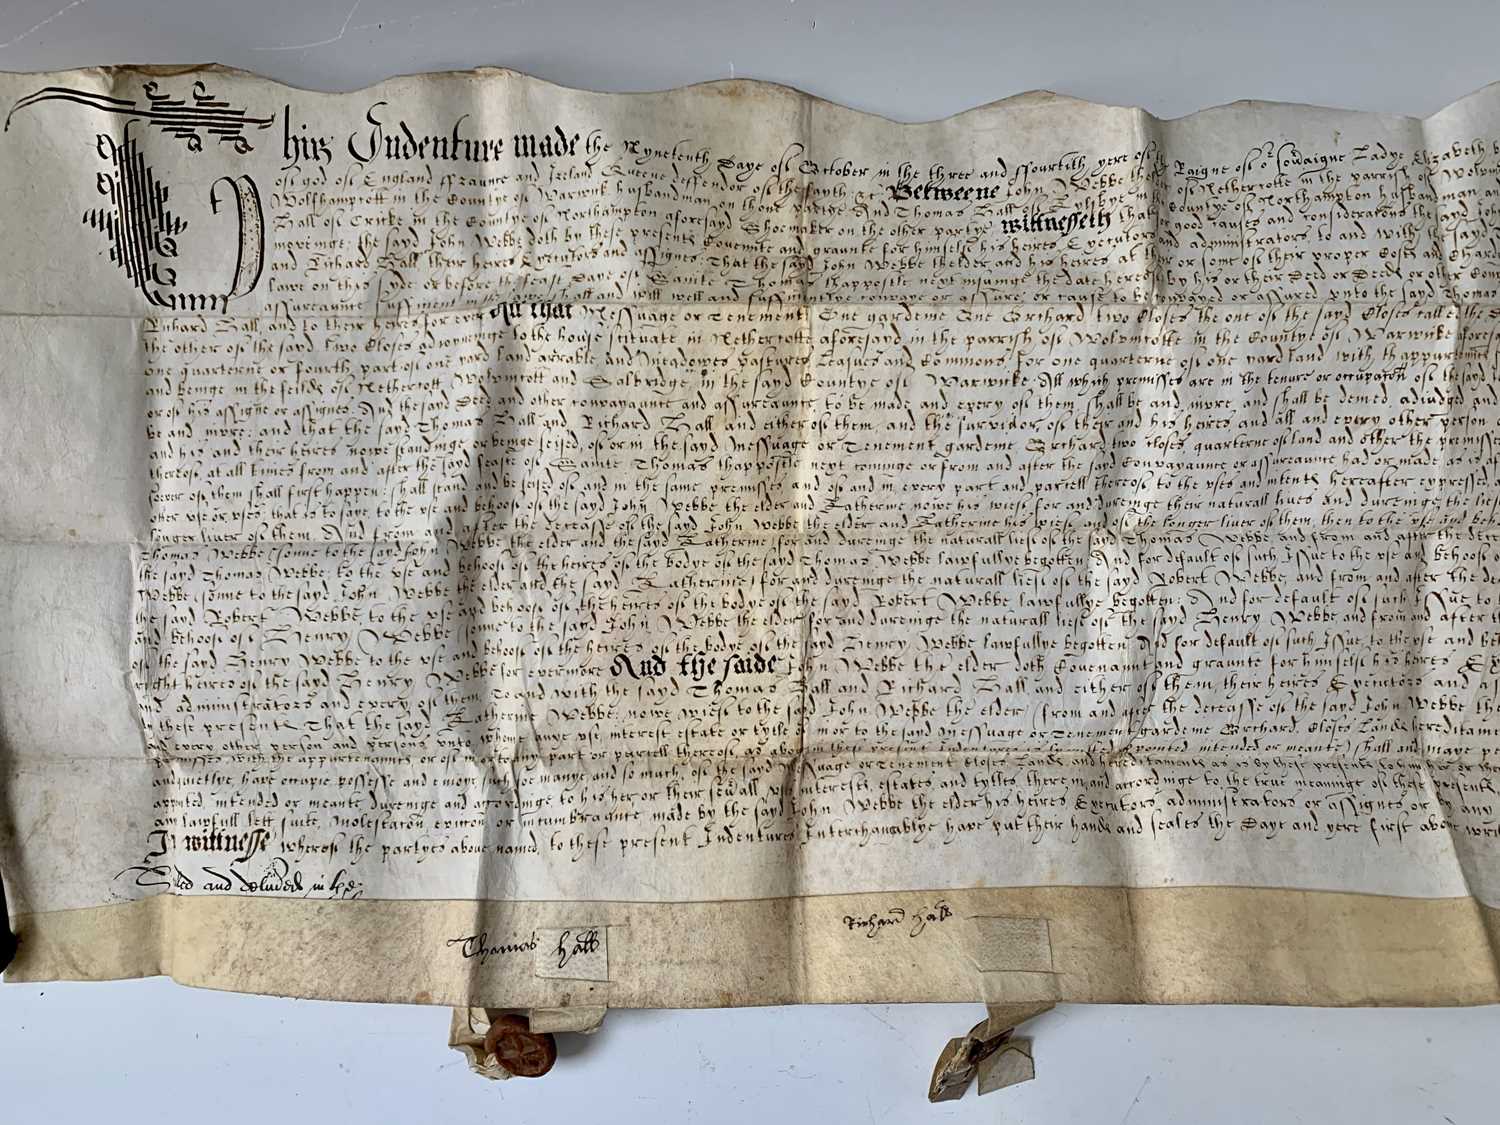 This Indenture made the Nyneteenth Daye of October in the three and ffourtith yere of the Raigne of or sovaigne Ladye Elizabeth
of god of England ffraunce and Ireland Queene deffendor of the fayth &c Betweene John Webbe the elder of Nethercotte in the parrish of
Wolfhamcott in the Countye of Warwick husbandman on thone partye And Thomas Hall of in the Countye of Northampton husbandman and
Hall of Cricke in the Countye of Northampton aforesayd Shoemaker on the other partye wittnesseth that for good causes and consideracons the sayd John
movinge the sayd John Webbe doth by these presents Covennte and graunte for himselfe his heires Executors and administrators to and with the sayd
and Richard Hall their heires Executors and assignes That the sayd John Webbe thelder and his heires at their or some of their proper Costs and Chardges
lawe on this syde or before the feast daye of Sainte Thomas thappostle next insuinge the date hereof by his or their Deed or Deeds or other
assureaunce suffitient in the lawe shall and will well and suffitientlye convaye or assure or cause to be convayed or assured unto the sayd Thomas
Richard Hall and to their heires for ever All that Messuage or Tenement One gardeine One Orchard two Closes the one of the sayd Closes called the
the other of the sayd two Closes adioyneinge to the house scituate in Nethercotte aforesayd in the parrish of in the Countye of Warwicke aforesayd
one quarterne or fourth part of one yard land arrable and Meadowes pastures Leasues and Commons for one quarterne of one yard land with thappurtennces
and beinge in the feilds of Nethercott and Sawbridge in the sayd Countye of Warwicke All which premisses are in the tenure or occupacon of the sayd
or of his assigne or assignes And the sayd Deed and other convayaunce and assureaunce to be made and every of them shall be and inure and shall be demed adiudged and
be and inure and that the sayd Thomas Hall and Richard Hall and either of them and the survivor of their and his heires and all and every other person
and his and their heires nowe standinge or beinge seised of or in the sayd Messuage or Tenement gardeine Orchard two closes quarterne of land and other the premisses
thereof at all times from and after the sayd feaste of Sainte Thomas thappostle next cominge or from and after the sayd Convayaunce or assureaunce had or made as is
soever of them shall first happen shall stand and be seised of and in the same premisses and of and in every part and parcell thereof to the uses and intents hereafter expressed
other use or uses that is to saye to the use and behoofe of the sayd John Webbe the elder and Katherine nowe his wiefe for and dureinge their naturall lives and dureinge the
longer liver of them And from and after the decease of the sayd John Webbe the elder and Katherine his wiefe and of the longer liver of them then to the use and
Thomas Webbe sonne to the sayd John Webbe the elder and the sayd Katherine for and dureinge the naturall liefe of the sayd Thomas Webbe and from and after the
the sayd Thomas Webbe to the use and behoofe of the heires of the bodye of the sayd Thomas Webbe lawfullye begotten And for default of such Issue to the use and behoofe of
Webbe sonne to the sayd John Webbe the elder and the sayd Katherine for and dureinge the naturall liefe of the sayd Robert Webbe and from and after the
the sayd Robert Webbe to the use and behoofe of the heires of the bodye of the sayd Robert Webbe lawfullye begotten And for default of such Issue to
and behoofe of Henry Webbe sonne to the sayd John Webbe the elder for and dureinge the naturall liefe of the sayd Henry Webbe and from and after
of the sayd Henry Webbe to the use and behoofe of the heires of the bodye of the sayd Henry Webbe lawfullye begotten And for default of such Issue to the use and
right heires of the sayd Henry Webbe for evermore And the saide John Webbe the elder doth Covenannt and graunte for himselfe his heires
and administrators and every of them to and with the sayd Thomas Hall and Richard Hall and either of them their heires Executors and
by these presents That the sayd Katherine Webbe nowe wiefe to the sayd John Webbe the elder from and after the decease of the sayd John Webbe the
and every other person and persons unto whome anye use interest estate or tytle of in or to the sayd Messuage or Tenement gardeine Orchard Closes Lands
premisses with the appurtenannces or of in or to any part or parcell thereof as above in these present Indentures is appointed intended or meante shall and maye
and quietlye have occupie possesse and enioye such soe manye and so much of the sayd Messuage or Tenement Closes Lands and hereditaments as is by these presents to him her or
appointed intended or meante dureinge and accordinge to his her or their severall uses interests estates and tytles therein and accordinge to the true meaninge of these presents
any lawfull lett suite molestacon eviccon or incumbraunce made by the sayd John Webbe the elder his heires Executors administrators or assignes or by any
In wittnesse whereof the partyes above named to these present Indentures Interchangablye have put their hands and seales the daye and yere first above
Sealed and delivered in
Thomas hall
Richard hall